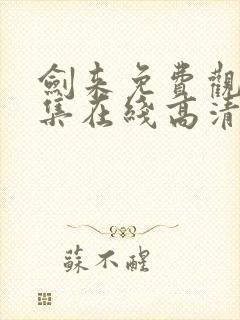 劍来免費觀
集在綫高清
蘇不醒